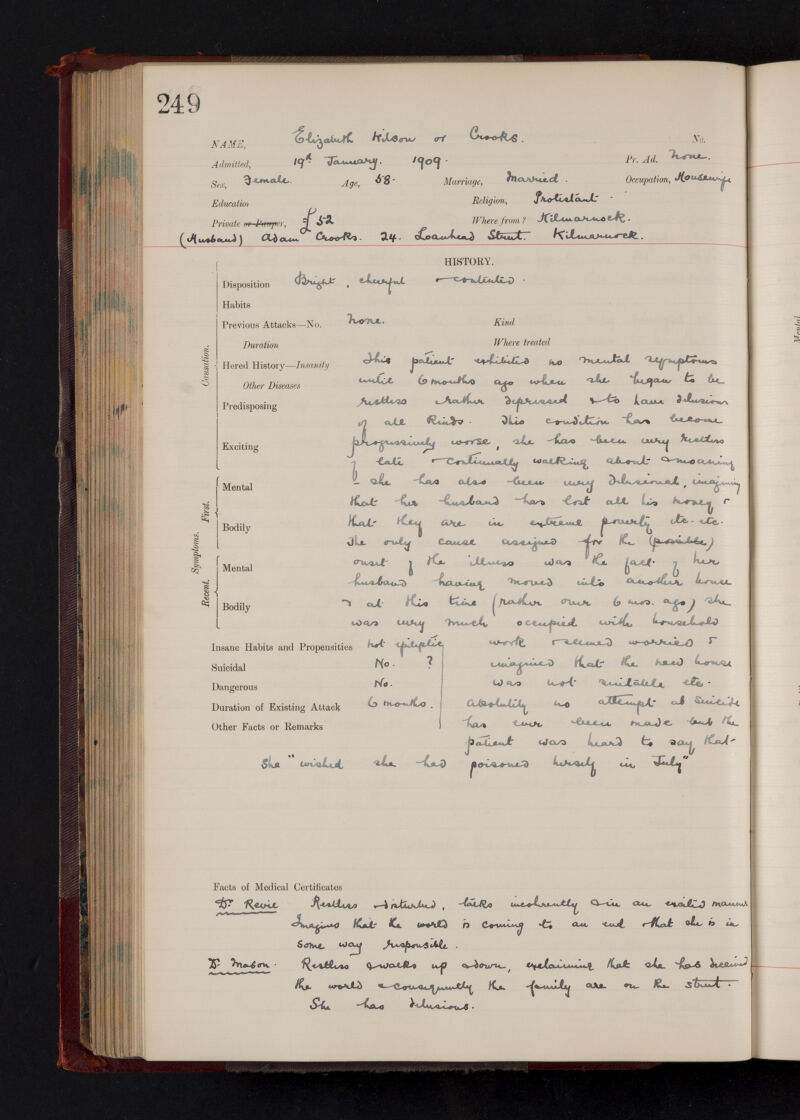 249
NAME, Elizabeth Wilson or Crooks. No.
Admitted, 19th January. 1909. Pr. Ad. None.
Sex, Female. Age, 58. Marriage, Married. Occupation, Housewife
Education Religion, Protestant
Private or Pauper, £52 Where from? Kilmarnock.
(Husband) Adam Crooks. 24. Loanhead Street. Kilmarnock.
HISTORY.
Causation.
Disposition Bright, cheerful & contented.
Habits
Previous Attacks—No. None. Kind
Duration Where treated
Hered History—Insanity This patient exhibited no mental symptoms
Other Diseases until 6 months ago when she began to be
Predisposing restless rather depressed & to have delusions
of all kinds. This condition has become
Exciting progressively worse, she has been very restless
of late & continually walking about & moaning
Symptoms. First.
Mental - she has also been very delusional, imagining
that her husband has lost all his money &
Bodily that they are in extreme poverty etc. etc.
The only cause assigned for the (possible)
Recent.
Mental onset of the illness was the fact of her
husband having moved into another house
Bodily & at this time (rather over 6 mos. ago) she
was very much occupied with household
Insane Habits and Propensities not epileptic work & seemed worried &
Suicidal No. ? imagined that the new house
Dangerous No. was not suitable etc.
Duration of Existing Attack 6 months. Absolutely no attempt at suicide
Other Facts or Remarks has ever been made but the
patient was heard to say that
She "wished she had poisoned herself in July"
Facts of Medical Certificates
Dr Revie Restless & disturbed, talks incoherently & in an excited manner
Imagines that the world is coming to an end & that she is in
some way responsible.
Dr Mason. Restless & walks up & down, exclaiming that she has deceived
the world & consequently the family are on the street.
She has delusions.
Mental